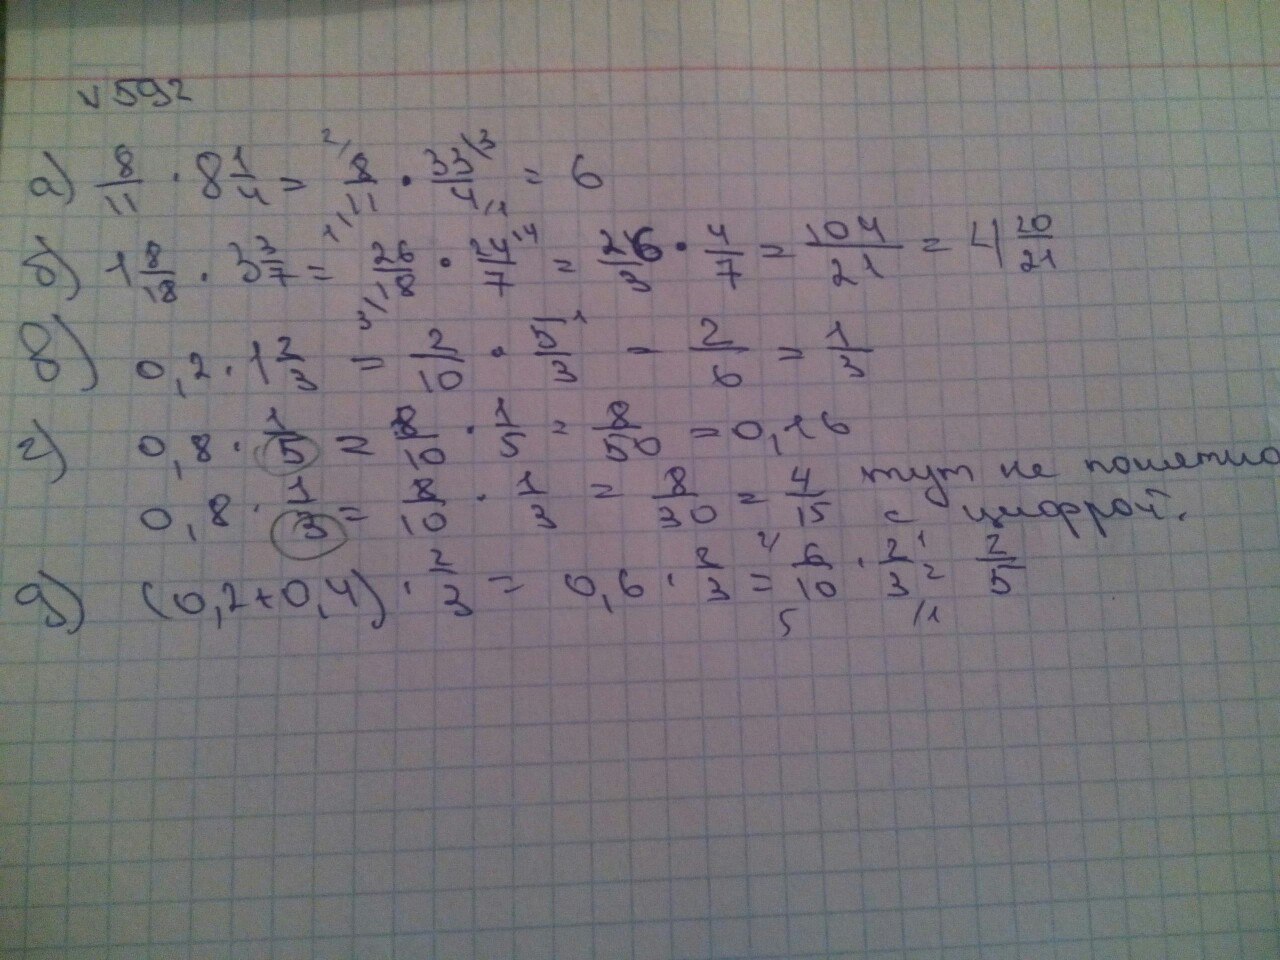 √592
а) 8/11 · 8 1/4 = 8/11 · 33/4 = 6
б) 1 8/18 · 3 3/7 = 26/18 · 24/7 = 26/3 · 4/7 = 104/21 = 4 20/21
в) 0,2 · 1 2/3 = 2/10 · 5/3 = 2/6 = 1/3
г) 0,8 · 1/5 = 8/10 · 1/5 = 8/50 = 0,16
0,8 · 1/3 = 8/10 · 1/3 = 8/30 = 4/15 тут не понятно
с цифрой.
д) (0,2+0,4) · 2/3 = 0,6 · 2/3 = 6/10 · 2/3 = 2/5